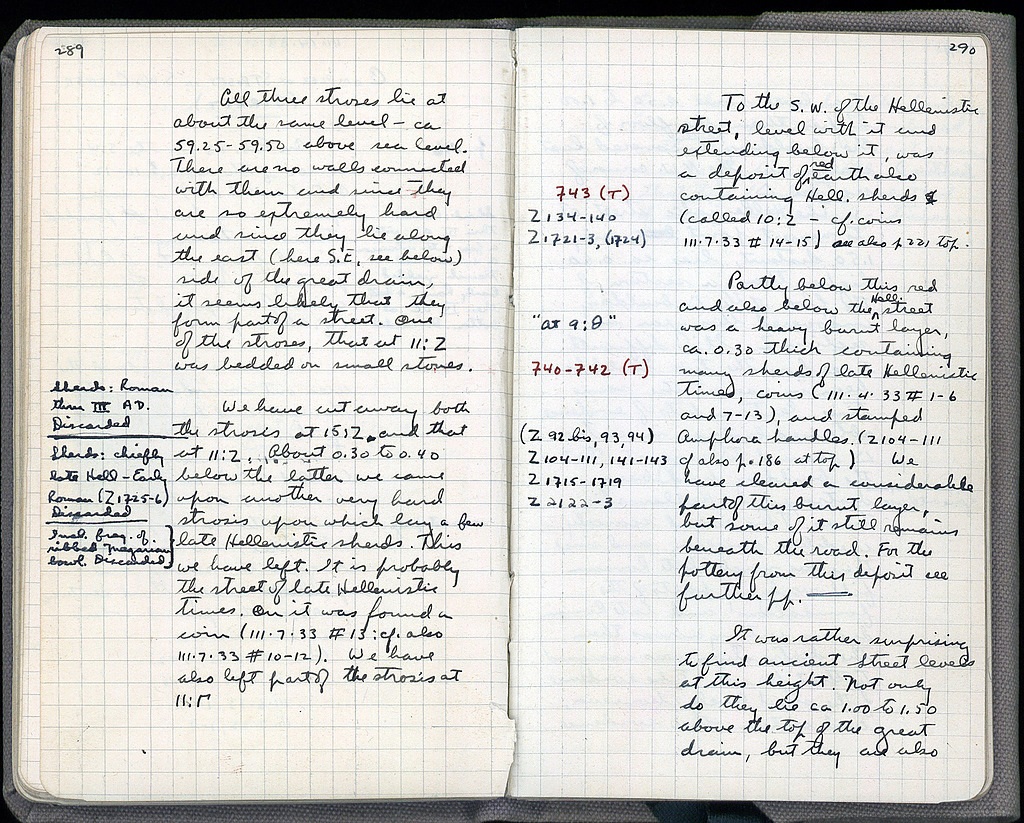 289
All three stroses lie at
about the same level – ca
59.25-59.50 above sea level.
There are no walls connected
with them and since they
are so extremely hard
and since they lie along
the east (here S.E, see below)
side of the great drain,
it seems likely that they
form part of a street. One
of the stroses, that at 11:Z
was bedded on small stones.
Sherds: Roman
thru III AD.
Discarded
Sherds: chiefly
late Hell - Early
Roman (Z1725-6)
Discarded
Incl. frag. of
ribbed Megarian
bowl. Discarded
We have cut away both
the strosis at 15:Z and that
at 11:Z. About 0.30 to 0.40
below the latter we came
upon another very hard
strosis upon which lay a few
late Hellenistic sherds. This
we have left. It is probably
the street of late Hellenistic
times. On it was found a
coin (111.7.33 #13: cf. also
111.7.33 #10-12). We have
also left part of the strosis at
11:Γ
290
743 (T)
Z134-140
Z1721-3, (1724)
"at 9:Θ"
740-742 (T)
(Z 92 bis, 93, 94)
Z104-111, 141-143
Z1715-1719
Z2122-3
To the S.W. of the Hellenistic
street, level with it and
extending below it, was
a deposit of red earth also
containing Hell. sherds
(called 10:Z – cf. coins
111.7.33 #14-15) see also p 221 top.
Partly below this red
and also below the Hell. street
was a heavy burnt layer,
ca. 0.30 thick containing
many sherds of late Hellenistic
times, coins (111.4.33 #1-6
and 7-13), and stamped
Amphora handles. (Z104-111
cf also p. 186 at top) We
have cleared a considerable
part of this burnt layer,
but some of it still remains
beneath the road. For the
pottery from this deposit see
further pp.
It was rather surprising
to find ancient street levels
at this height. Not only
do they lie ca 1.00 to 1.50
above the top of the great
drain, but they are also